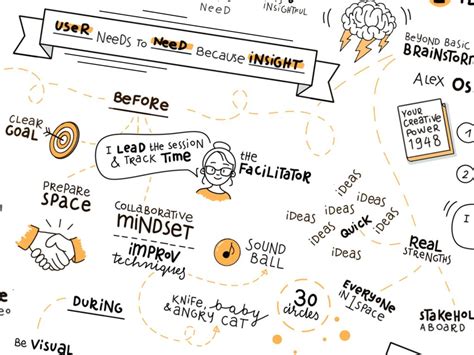 NEED
INSIGHTFUL
USER NEEDS TO NEED BECAUSE INSIGHT
BEYOND BASIC
BRAINSTORM
ALEX OS
BEFORE
CLEAR
GOAL
I LEAD the SESSION
& TRACK TIME
the
FACILITATOR
YOUR
CREATIVE
POWER
1948
PREPARE
SPACE
COLLABORATIVE
MINDSET
IMPROV
techniques
SOUND
BALL
iDEAS
iDEAS
iDEAS
iDEAS
QUICK
iDEAS
iDEAS
iDEAS
REAL
STRENGTHS
DURING
KNIFE, baby
& ANGRY CAT
30
circles
EVERYONE
IN 1 SPACE
STAKEHOL
ABOARD
BE VISUAL